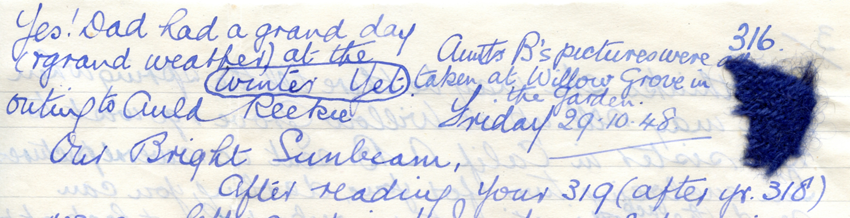 Yes! Dad had a grand day
(& grand weather) at the
Winter Yet.
outing to Auld Reekie
316.
Aunts B's pictures were all
taken at Willow Grove in
the garden.
Friday 29·10·48
Our Bright Sunbeam,
After reading your 319 (after yr. 318)